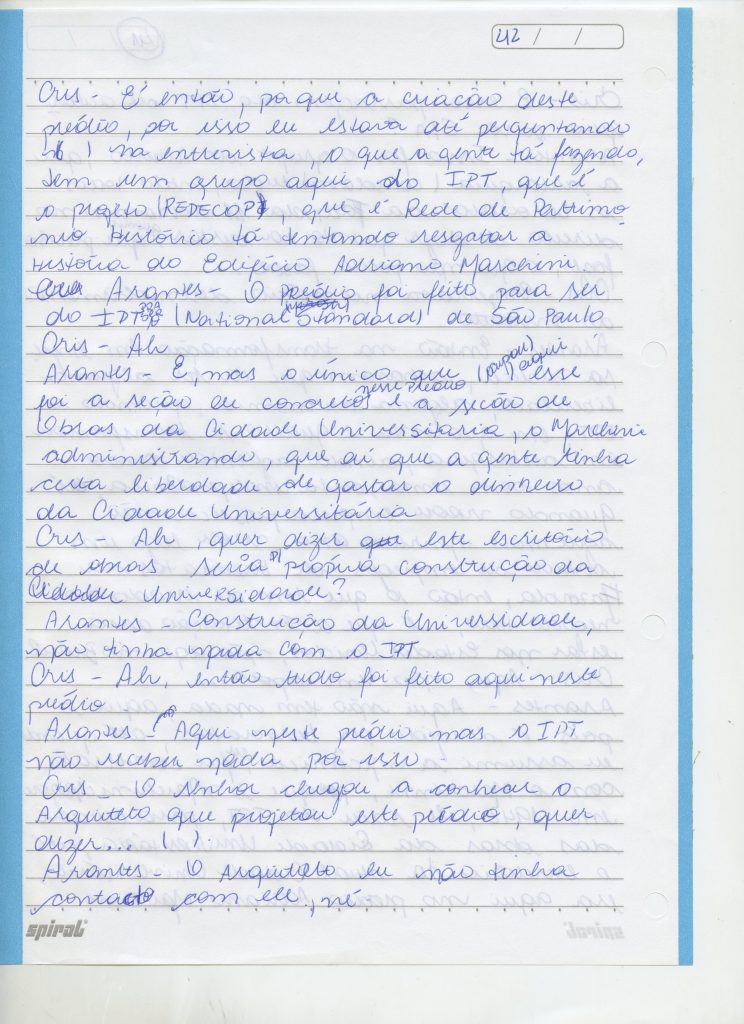 42 / /
Cris - É então, porque a criação deste
prédio, por isso eu estava até perguntando
( ) na entrevista, o que a gente tá fazendo,
tem um grupo aqui do IPT, que é
o projeto (REDECOP), que é Rede de Patrimô
nio Histórico tá tentando resgatar a
História do Edifício Adriano Marchini
Arantes - O prédio foi feito para ser
do IPT (National Standard) de São Paulo
Cris - Ah
Arantes - É, mas o único que (ocupou) aqui esse
nesse prédio
foi a seção de concreto, e a seção de
Obras da Cidade Universitária, o Marchini
administrando, que aí que a gente tinha
certa liberdade de gastar o dinheiro
da Cidade Universitária
Cris - Ah, quer dizer que este escritório
de obras seria p/ própria construção da
Cidade Universidade?
Arantes - Construção da Universidade,
não tinha nada com o IPT
Cris - Ah, então tudo foi feito aqui neste
prédio
Arantes - Aqui neste prédio mas o IPT
não recebeu nada por isso -
Cris - O senhor chegou a conhecer o
Arquiteto que projetou este prédio, quer
dizer... ( ).
Arantes - O Arquiteto eu não tinha
contacto com ele, né
spiral